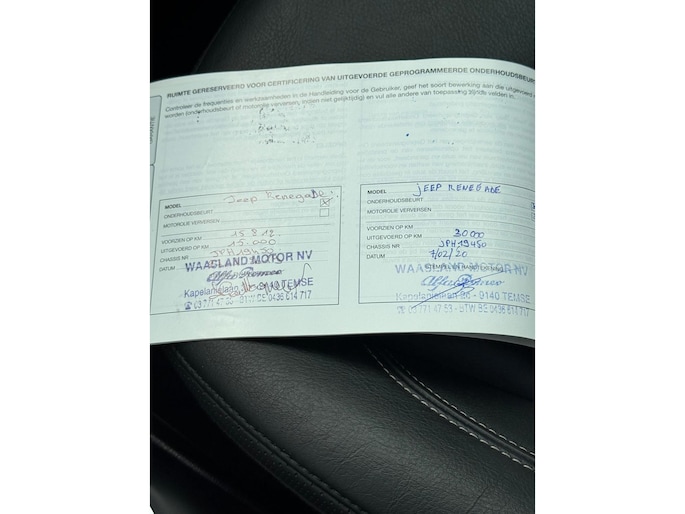 RUIMTE GERESERVEERD VOOR CERTIFICERING VAN UITGEVOERDE GEPROGRAMMEERDE ONDERHOUDSBEUR
Controleer de frequenties en werkzaamheden in de Handleiding voor de Gebruiker, geef het soort bewerking aan die uitgevoerd
worden (onderhoudsbeurt of motorolie verversen, indien niet gelijktijdig) en vul alle andere van toepassing zijnde velden in.
MODEL Jeep Renegade
ONDERHOUDSBEURT
MOTOROLIE VERVERSEN
VOORZIEN OP KM 15.8.18
UITGEVOERD OP KM 15.000
CHASSIS NR JPH19450
DATUM
WAASLAND MOTOR NV
Alfa Romeo
Kapelanielaan TEMSE
03 771 47 53 - BTW BE 0436 614 717
MODEL JEEP RENEGADE
ONDERHOUDSBEURT
MOTOROLIE VERVERSEN
VOORZIEN OP KM
UITGEVOERD OP KM 30 000
CHASSIS NR JPH19450
DATUM 7/02/20
STEMPEL EN HANDTEKENING
WAASLAND MOTOR NV
Alfa Romeo
Kapelanielaan 9140 TEMSE
03 771 47 53 - BTW BE 0436 614 717